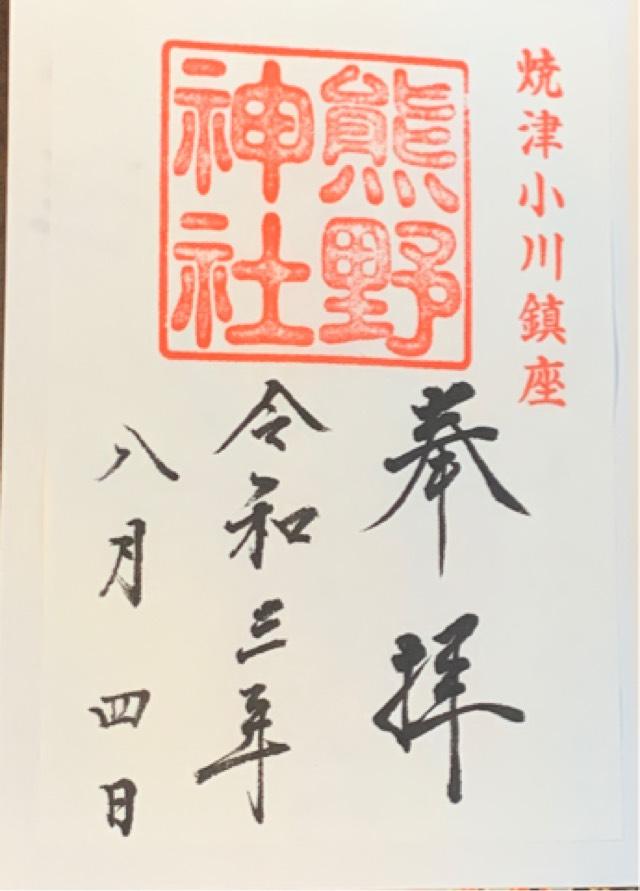 焼津小川鎮座
熊野
神社
奉拝
令和三年
八月四日